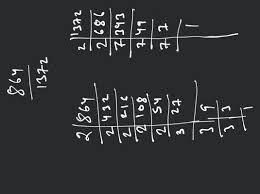 864
1372
2 864
2 432
2 216
2 108
2 54
3 27
3 9
3 3
1
2 1372
2 686
7 343
7 49
7 7
1